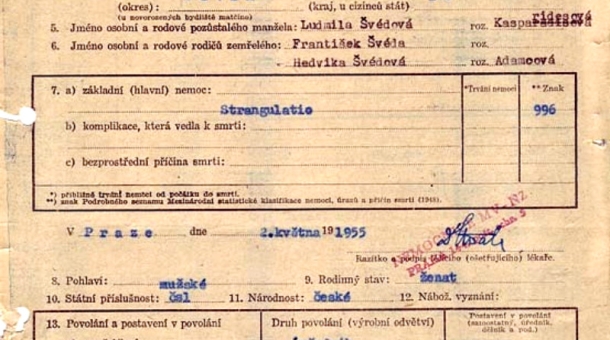 (okres): (kraj, u cizinců stát)
(u novorozených bydliště matčino)
5. Jméno osobní a rodové pozůstalého manžela: Ludmila Švédová roz.
6. Jméno osobní a rodové rodičů zemřelého: František Švéda
Hedvika Švédová roz. Adamcová
7. a) základní (hlavní) nemoc: *Trvání nemoci **Znak
Strangulatio 996
b) komplikace, která vedla k smrti:
c) bezprostřední příčina smrti:
*) přibližné trvání nemoci od počátku do smrti.
**) znak Podrobného seznamu Mezinárodní statistické klasifikace nemocí, úrazů a příčin smrti (1948).
V Praze dne 2.května 1955
NEMOCNICE MV-NZ
Razítko a podpis lékaře.
8. Pohlaví: mužské 9. Rodinný stav: ženat
10. Státní příslušnost: čsl 11. Národnost: české 12. Nábož. vyznání:
13. Povolání a postavení v povolání Druh povolání (výrobní odvětví) Postavení v povolání
(samostatný, úředník,
dělník a pod.)